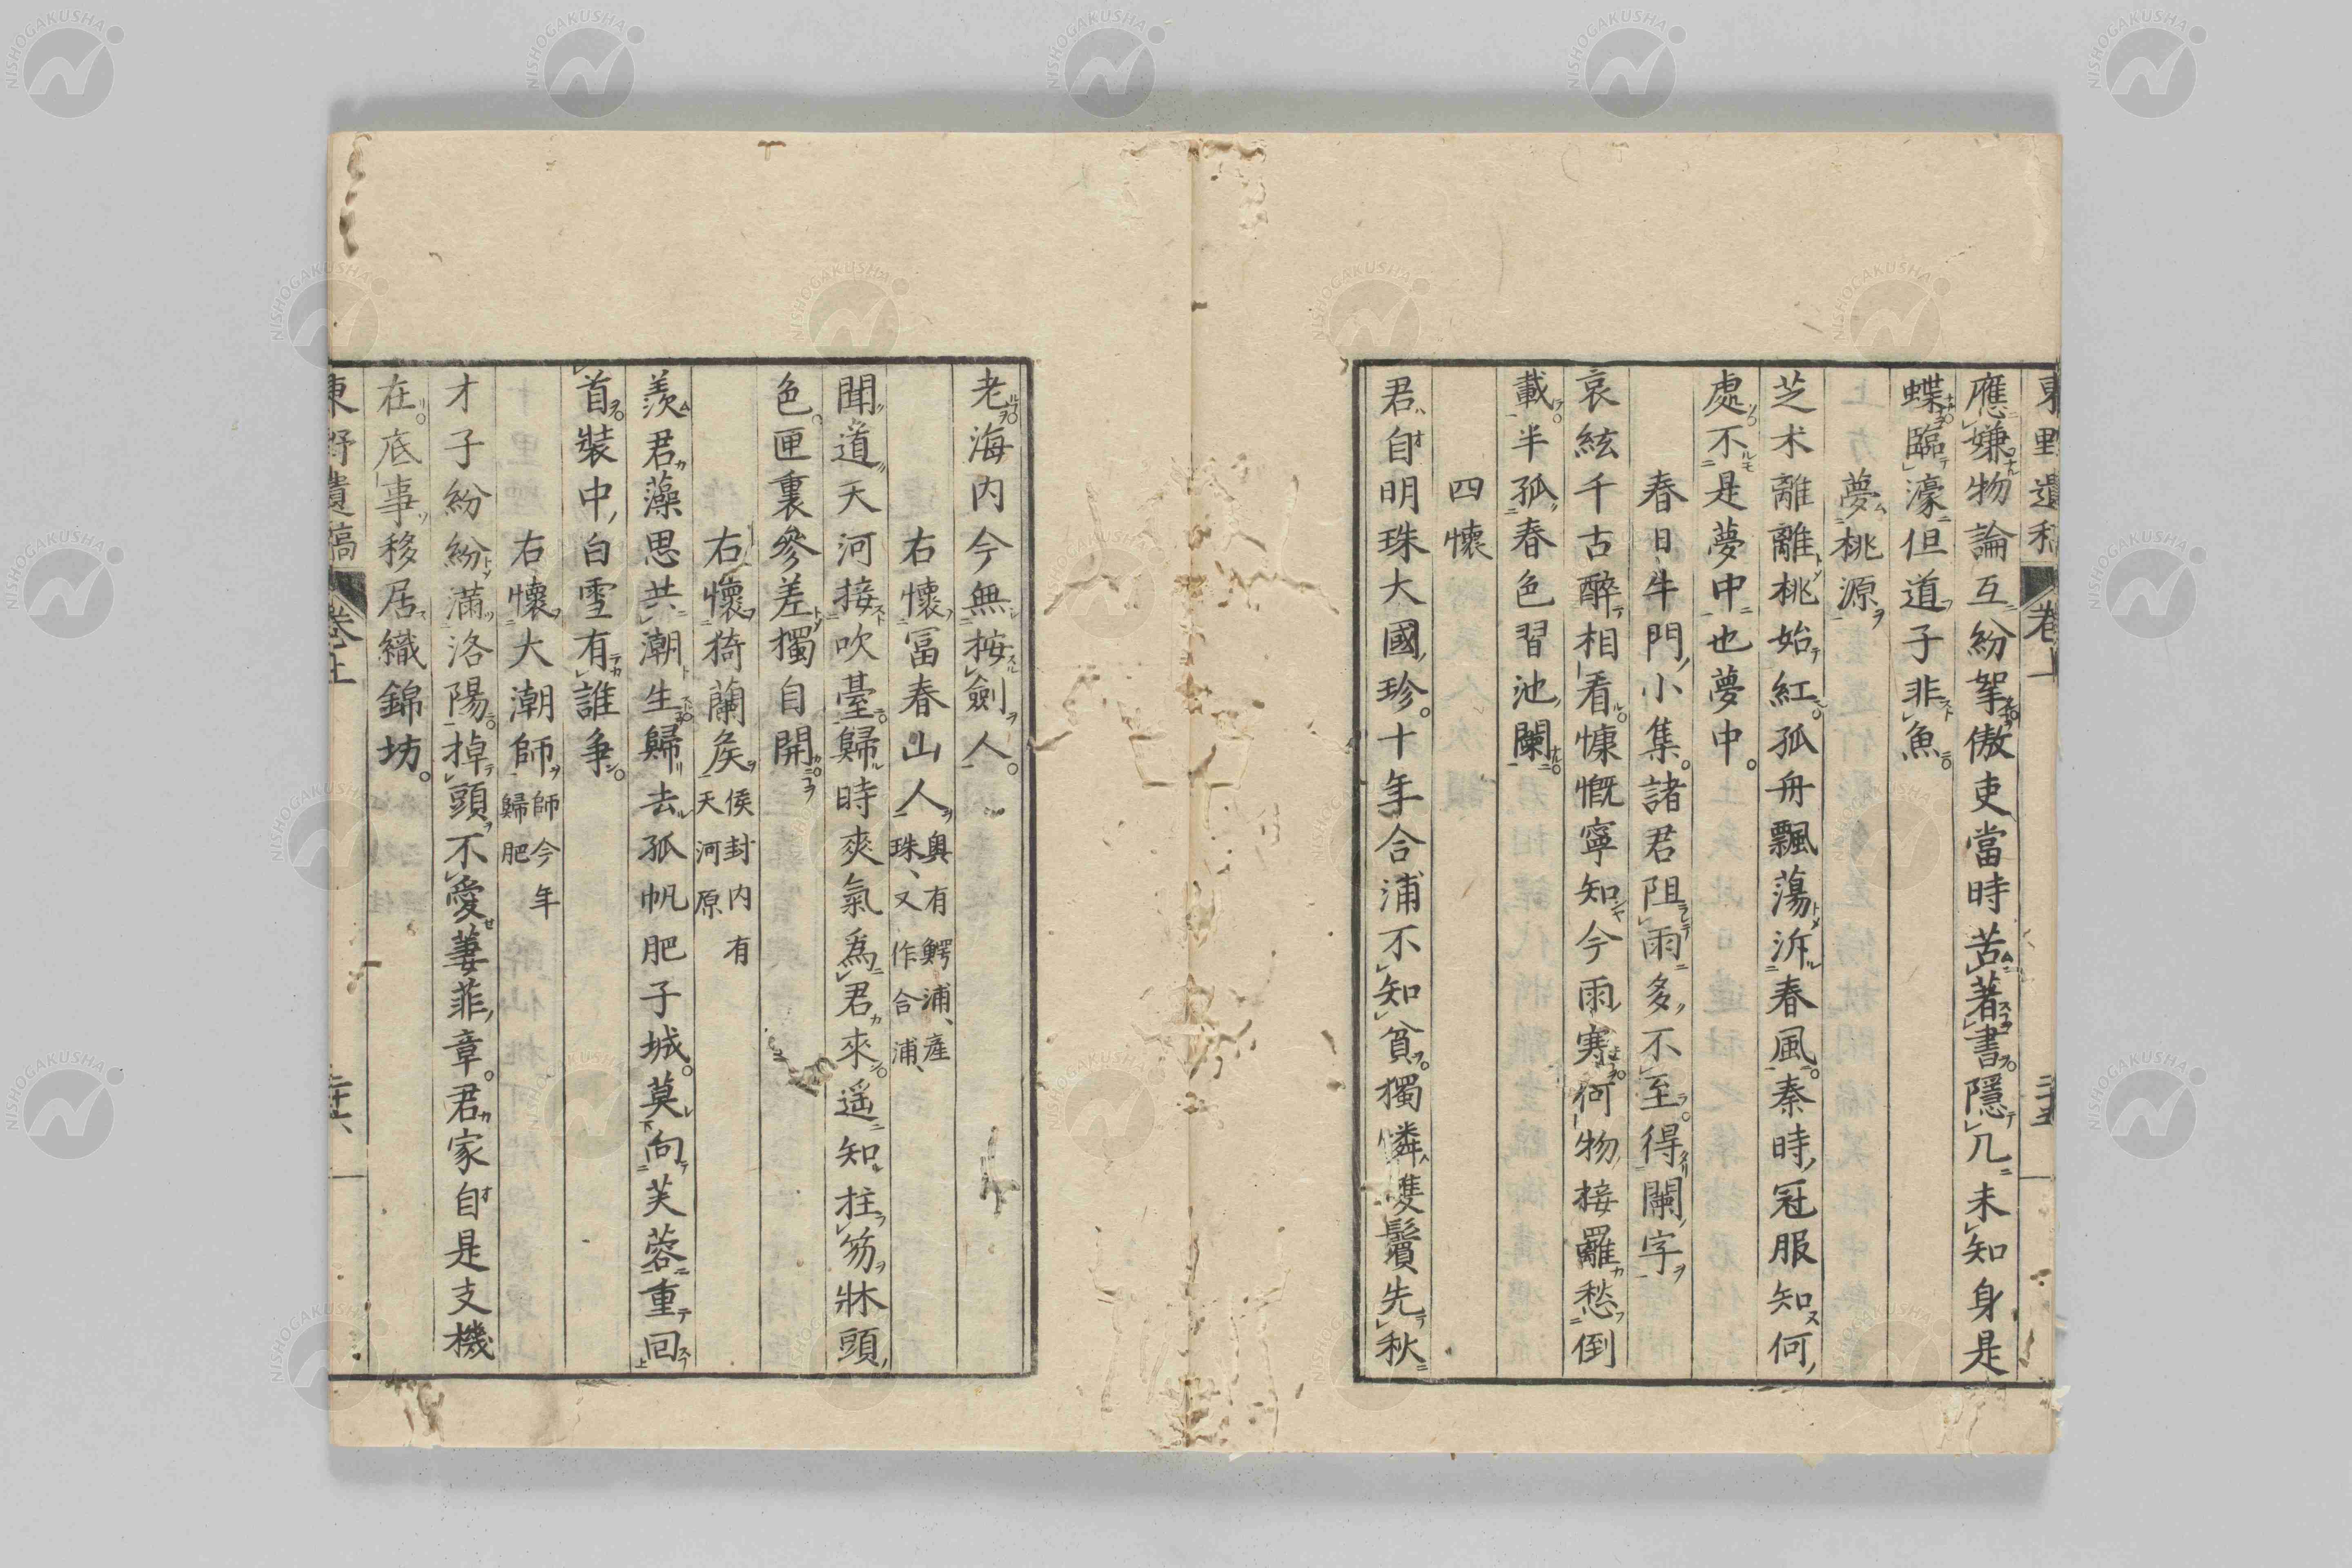 東野遺稿 卷上 二十五
應嫌物論互紛挐傲吏當時苦著書隱几未知身是
蝶臨濠但道子非魚
夢桃源
芝术離離桃始紅孤舟飄蕩泝春風秦時冠服知何
處不是夢中也夢中
春日牛門小集諸君阻雨多不至得闌字
哀絃千古醉相看慷慨寧知今雨寒何物接䍦愁倒
載半孤春色習池闌
四懷
君自明珠大國珍十年合浦不知貧獨憐雙鬢先秋
老海内今無按劍人
右懷富春山人奥有鰐浦産珠又作合浦
聞道天河接吹臺歸時爽氣爲君來遥知拄笏牀頭
色匣裏參差獨自開
右懷猗蘭矦侯封内有天河原
羨君藻思共潮生歸去孤帆肥子城莫向芙蓉重回
首裝中白雪有誰爭
右懷大潮師師今年歸肥
才子紛紛滿洛陽掉頭不愛萋菲章君家自是支機
在底事移居織錦坊
東野遺稿 卷上 二十六
NISHOGAKUSHA